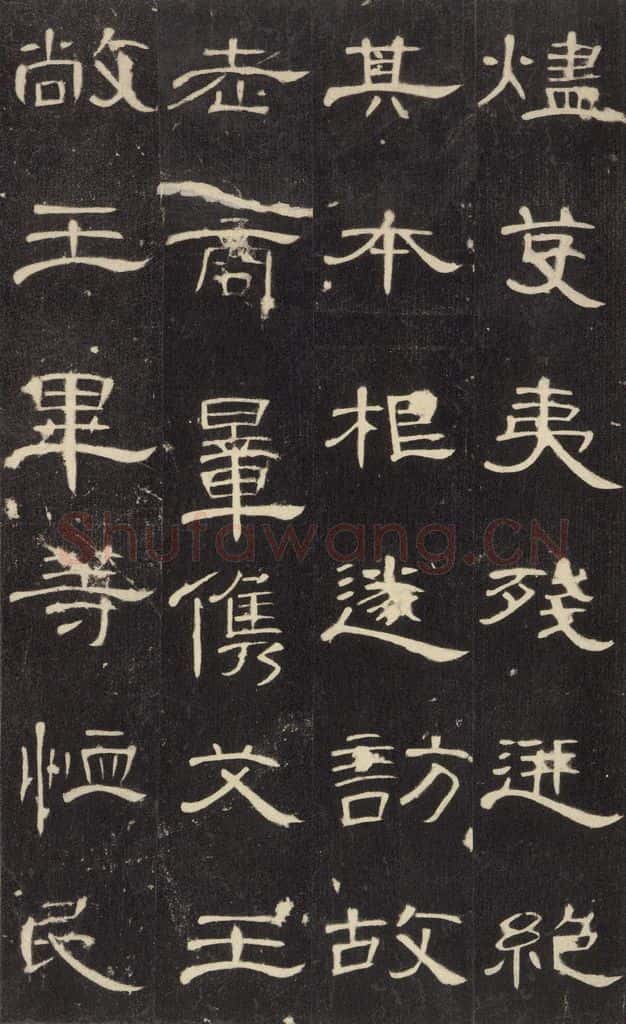 燼芟夷殘迸絕
其本根遂訪故
老商量儁艾王
敞王畢等恤民
Shufawang.CN